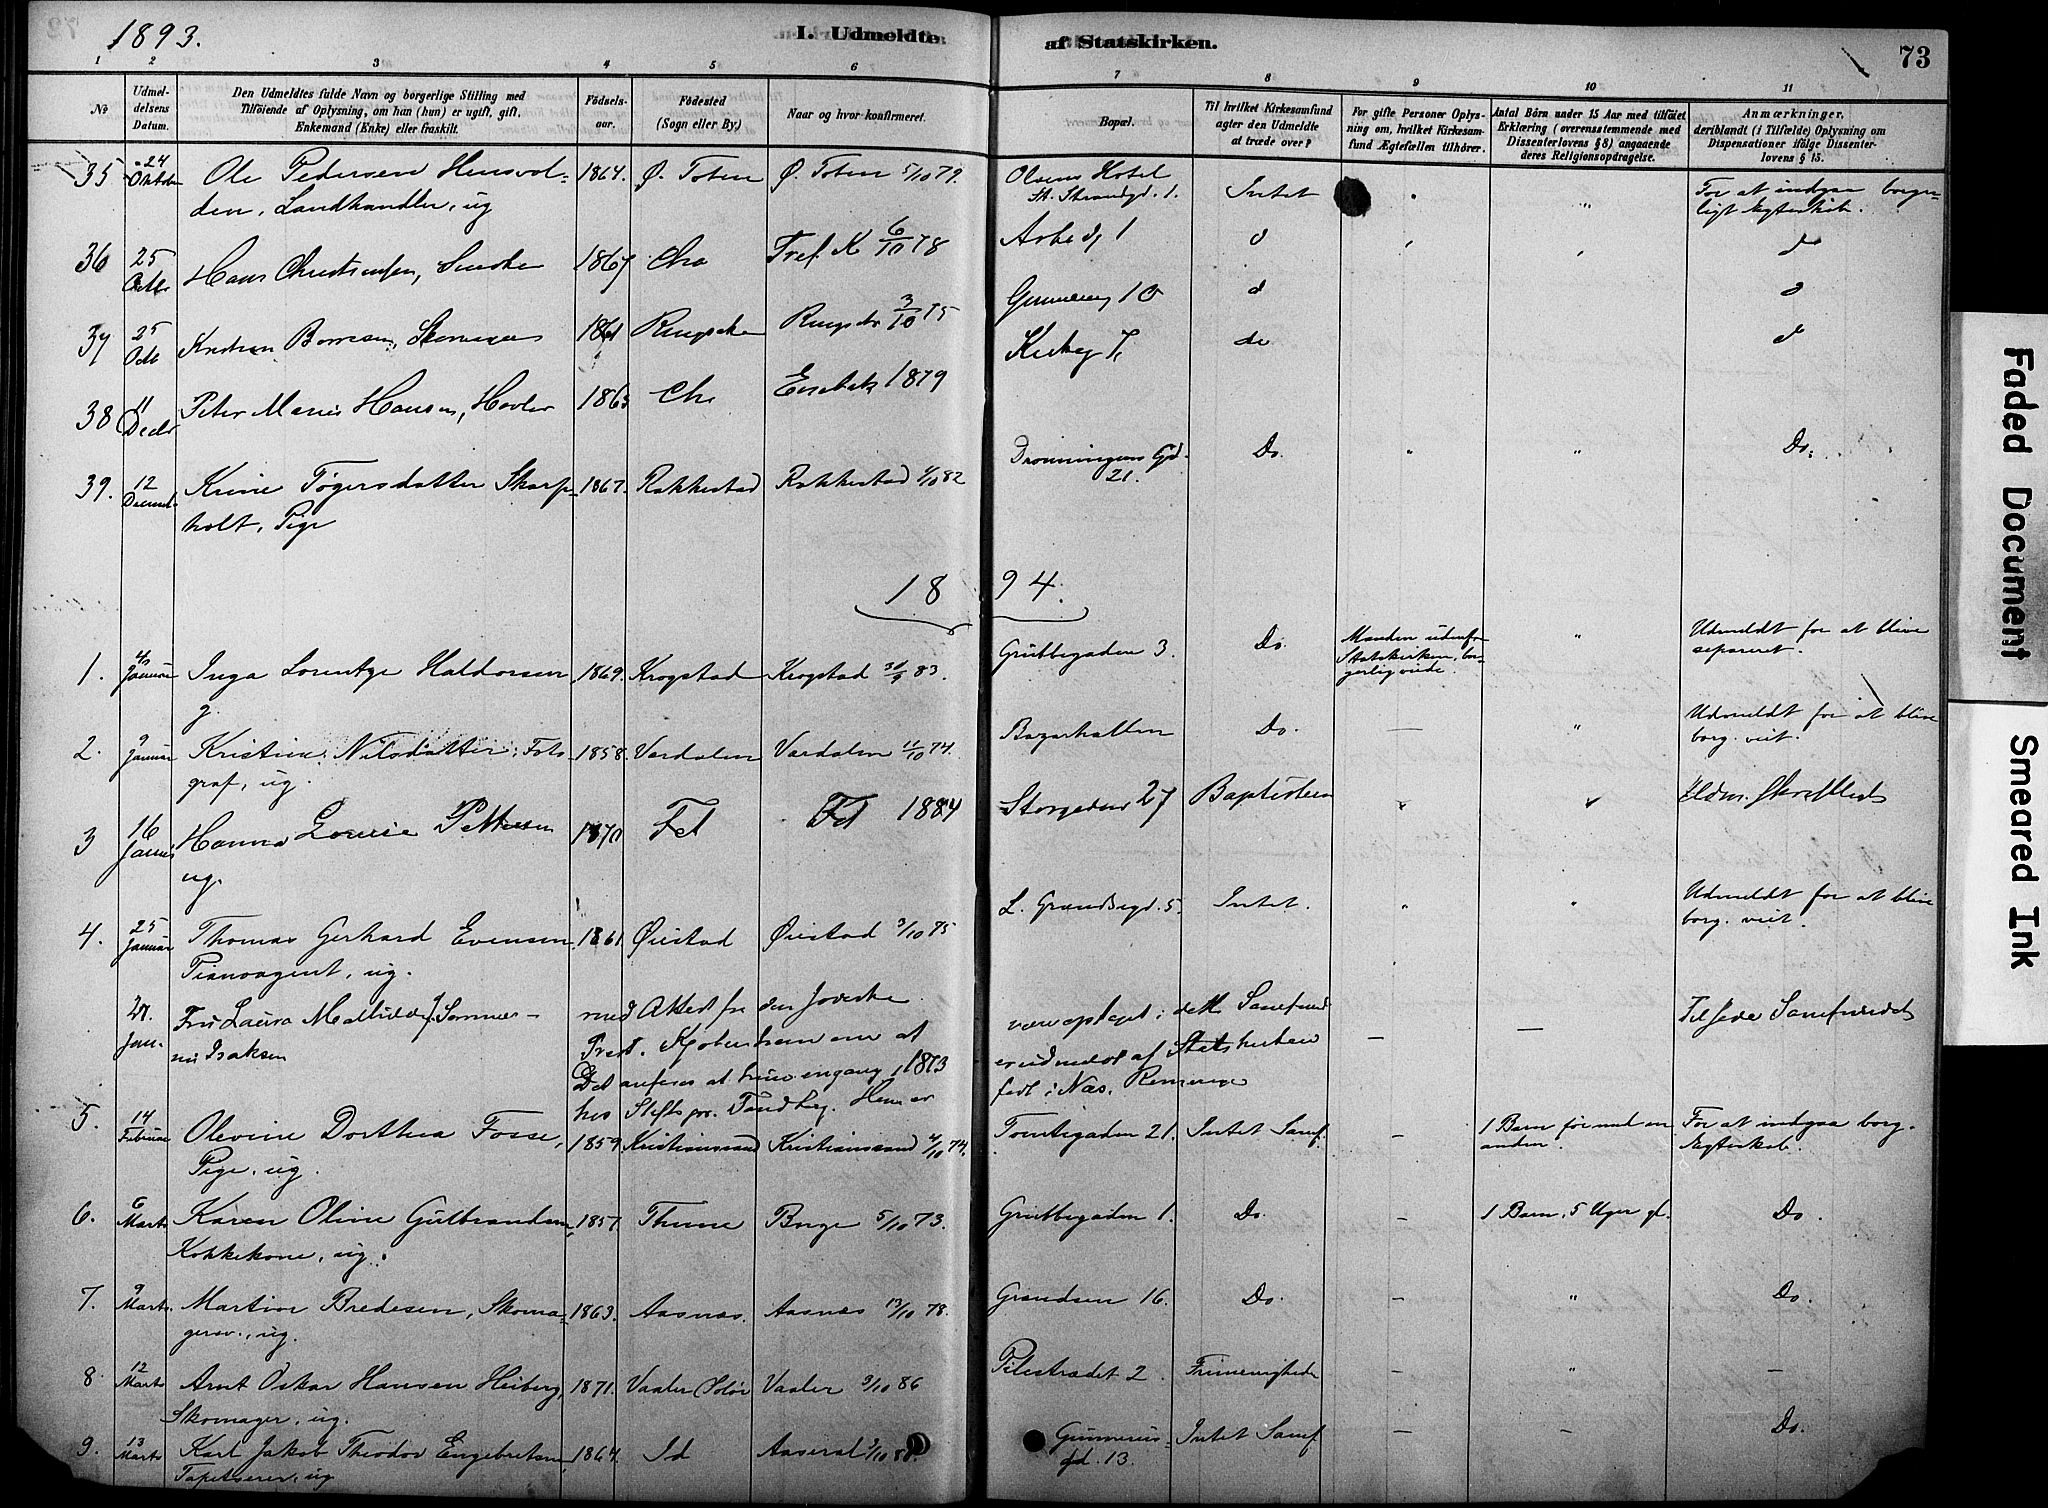 1893.
I. Udmeldte
af Statskirken.
73
1 2 3 4 5 6 7 8 9 10 11
No
Udmel-
delsens
Datum.
Den Udmeldtes fulde Navn og borgerlige Stilling med
Tilföiende af Oplysning, om han (hun) er ugift, gift,
Enkemand (Enke) eller fraskilt.
Födsels-
aar.
Födested
(Sogn eller By.)
Naar og hvor konfirmeret.
Bopæl.
Til hvilket Kirkesamfund
agter den Udmeldte
at træde over?
For gifte Personer Oplys-
ning om, hvilket Kirkesam-
fund Ægtefællen tilhörer.
Antal Börn under 15 Aar med tilföiet
Erklæring (overensstemmende med
Dissenterlovens § 8) angaaende
deres Religionsopdragelse.
Anmærkninger,
deriblandt (i Tilfælde) Oplysning om
Dispensationer ifölge Dissenter-
lovens § 15.
35 24 Oktober Ole Pedersen Hensvol- 1864. Ø. Toten Ø. Toten 5/10 79. Olsens Hotel Intet " For at indgaa borger-
den, Landhandler, ug St. Strandgd. 1. ligt Ægteskab.
36 25 Octbr Hans Christensen, 1867 Chra Tref. K 6/10 78 Arbeidg 1 d d
37 25 Octb Kristian Borresen, 1861 3/10 75 10 d d
38 11 Decbr Peter Marius Hansen, 1865 Chr 1879 7 do d
39. 12 Decemb. Krine Tøgersdatter Skarp- 1867. Rakkestad Rakkestad 1/10 82 Dronningens Gd. Do. " " Do.
holt, Pige 21.
1894.
1. Januar Inga Lorentze Haldorsen 1869. Krogstad Krogstad 30/9 83. Grubbegaden 3. Do. Manden udenfor " Udmeldt for at blive
g. Statskirken, bor- separeret.
gerlig viede.
2. 9 Januar Kristine Nilsdatter, Foto- 1858. Værdalen Værdalen 11/10 74. Bazarhallen Do. — " Udmeldt for at blive
graf, ug. borg. viet.
3 16 Januar Hanna Lovise Pettersen 1870 Fet Fet 1884 Storgaden 27 Baptistern
ug.
4. 25 Januar Thomas Gerhard Evensen 1861 Øiestad Øiestad 3/10 75 L. Grændsegd. 5. Intet. " " Udmeldt for at blive
Pianoagent, ug. borg. viet.
27. Jan. Fru Laura Mathilde Sommer — med Attest fra den Jødiske være optaget i dette Samfund — — Til Jøde Samfundet
Isaksen Præst. Kjøbenhavn om at er udmeldt af Statskirken
Det anføres at hun engang i 1873 født i Næs, Romerige
hos Stiftspr. Tandberg. Hun er
5. 14 Februar Olevine Dorthea Fosse, 1859 Kristianssand Kristianssand 4/10 74. Tomtegaden 21. Intet Samf. — 1 Barn før med en For at indgaa borg.
Pige, ug. anden. Ægteskab.
6. 6 Marts Karen Oline Gulbrandsen, 1857. Thune Borge 5/10 73. Grubbegaden 1. Do. — 1 Barn, 5 Uger gl. Do.
Kokkekone, ug.
7. 9 Marts. Martin Bredesen, Skoma- 1863. Aasnæs. Aasnæs 13/10 78. Grændsen 16. Do. — " Do.
gersv., ug.
8. 12 Marts Arnt Oskar Hansen Heiberg, 1871. Vaaler Solør Vaaler 3/10 86 Pilestrædet 2. Frimenighede — " —
Skomager, ug.
9. 13 Marts Karl Jakob Theodor Engebretsen, 1864. Id Aaseral Gunnerus- Intet Samf. — — Do.
Tapetserer, ug gd. 13.
Faded Document
Smeared Ink